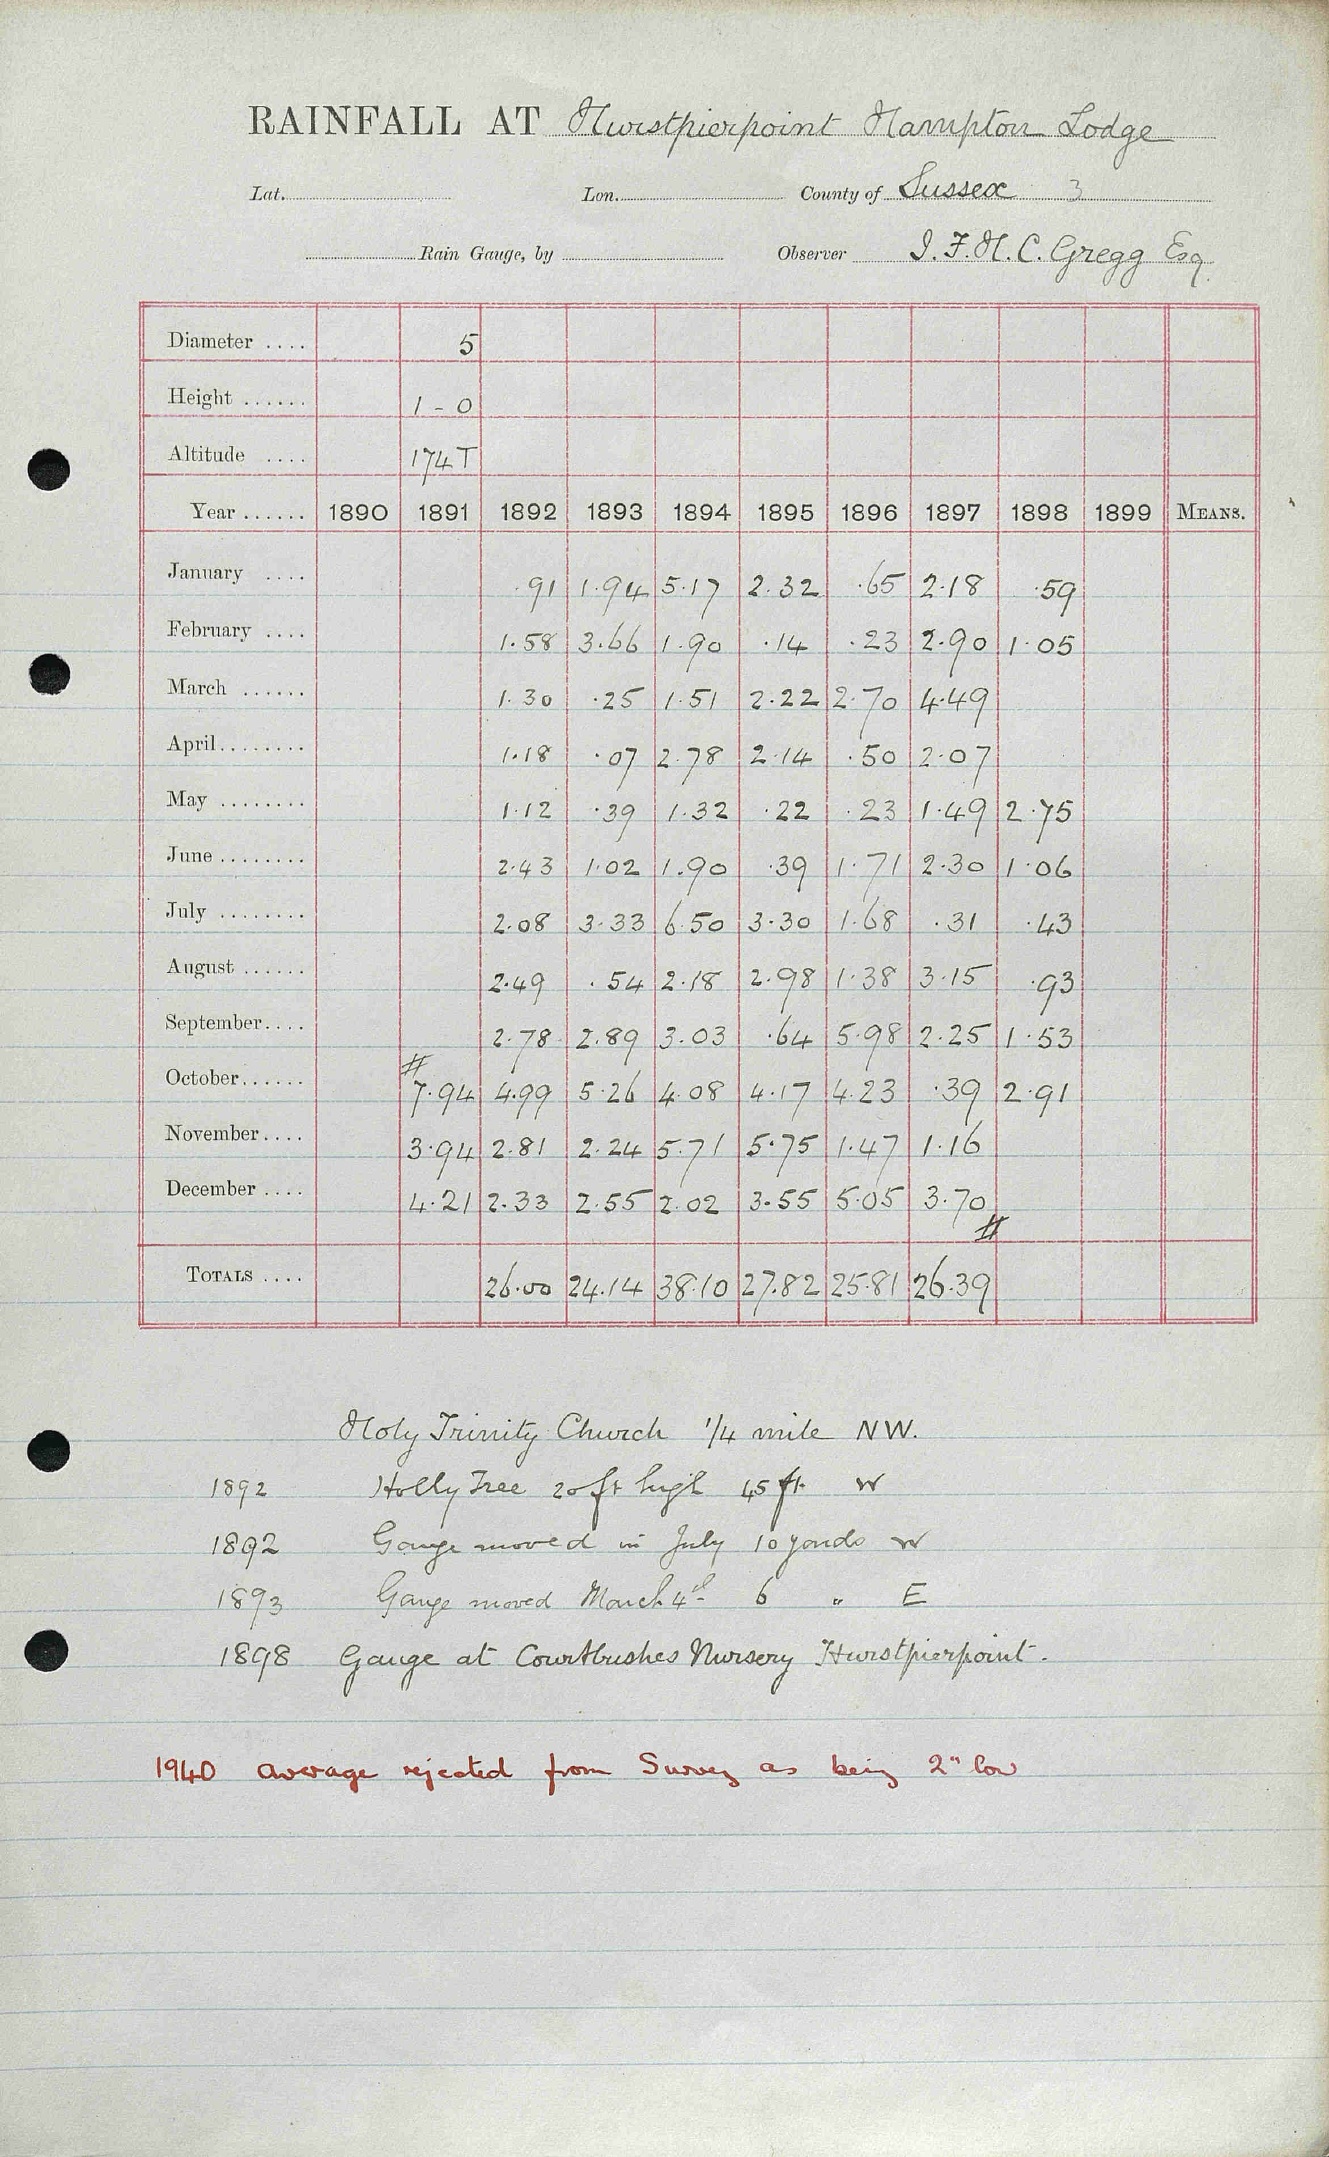 RAINFALL AT Hurstpierpoint Hampton Lodge
Lat. Lon. County of Sussex 3
Rain Gauge, by Observer I. F. H. C. Gregg Esq.
Diameter .... 5
Height ...... 1 - 0
Altitude .... 174 T
Year ...... 1890 1891 1892 1893 1894 1895 1896 1897 1898 1899 MEANS.
January .... .91 1.94 5.17 2.32 .65 2.18 .59
February .... 1.58 3.66 1.90 .14 .23 2.90 1.05
March ...... 1.30 .25 1.51 2.22 2.70 4.49
April ........ 1.18 .07 2.78 2.14 .50 2.07
May ........ 1.12 .39 1.32 .22 .23 1.49 2.75
June ........ 2.43 1.02 1.90 .39 1.71 2.30 1.06
July ........ 2.08 3.33 6.50 3.30 1.68 .31 .43
August ...... 2.49 .54 2.18 2.98 1.38 3.15 .93
September .... 2.78 2.89 3.03 .64 5.98 2.25 1.53
October ...... # 7.94 4.99 5.26 4.08 4.17 4.23 .39 2.91
November .... 3.94 2.81 2.24 5.71 5.75 1.47 1.16
December .... 4.21 2.33 2.55 2.02 3.55 5.05 3.70 #
TOTALS .... 26.00 24.14 38.10 27.82 25.81 26.39
Holy Trinity Church 1/4 mile NW.
1892 Holly Tree 20 ft high 45 ft. W
1892 Gauge moved in July 10 yards W
1893 Gauge moved March 4th 6 " E
1898 Gauge at Courtbushes Nursery Hurstpierpoint.
1940 average rejected from Survey as being 2" low